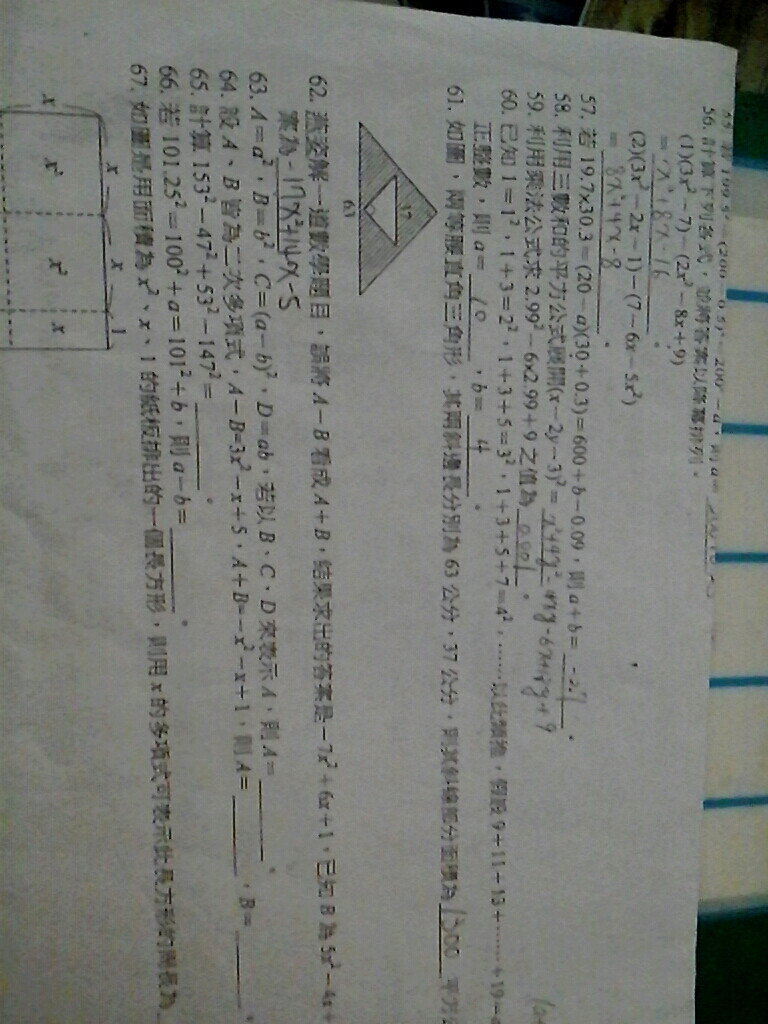 56. 計算下列各式，並將答案以降冪排列。
(1)(3x²－7)－(2x²－8x＋9)
= x²+8x-16 。
(2)(3x²－2x－1)－(7－6x－5x²)
= 8x²+4x-8 。
57. 若 19.7×30.3＝(20－a)(30＋0.3)＝600＋b－0.09，則 a＋b＝ -2.7 。
58. 利用三數和的平方公式展開(x－2y－3)²＝ x²+4y²-4xy-6x+12y+9
59. 利用乘法公式求 2.99²－6×2.99＋9 之值為 0.001 。
60. 已知 1＝1²，1＋3＝2²，1＋3＋5＝3²，1＋3＋5＋7＝4²，……以此類推，假設 9＋11＋13＋……＋19＝
正整數，則 a＝ 10 ，b＝ 4 。
61. 如圖，兩等腰直角三角形，其兩斜邊長分別為 63 公分，37 公分，則其斜線部分面積為 1300 平方
37
63
62. 燕姿解一道數學題目，誤將 A－B 看成 A＋B，結果求出的答案是－7x²＋6x＋1，已知 B 為 5x²－4x＋
案為 -17x²+14x-5
63. A＝a²，B＝b²，C＝(a－b)²，D＝ab，若以 B、C、D 來表示 A，則 A＝ 。
64. 設 A、B 皆為二次多項式，A－B＝3x²－x＋5，A＋B＝－x²－x＋1，則 A＝ ，B＝ 。
65. 計算 153²－47²＋53²－147²＝ 。
66. 若 101.25²＝100²＋a＝101²＋b，則 a－b＝ 。
67. 如圖是用面積為 x²、x、1 的紙板排出的一個長方形，則用 x 的多項式可表示此長方形的周長為
x x 1
x x² x² x